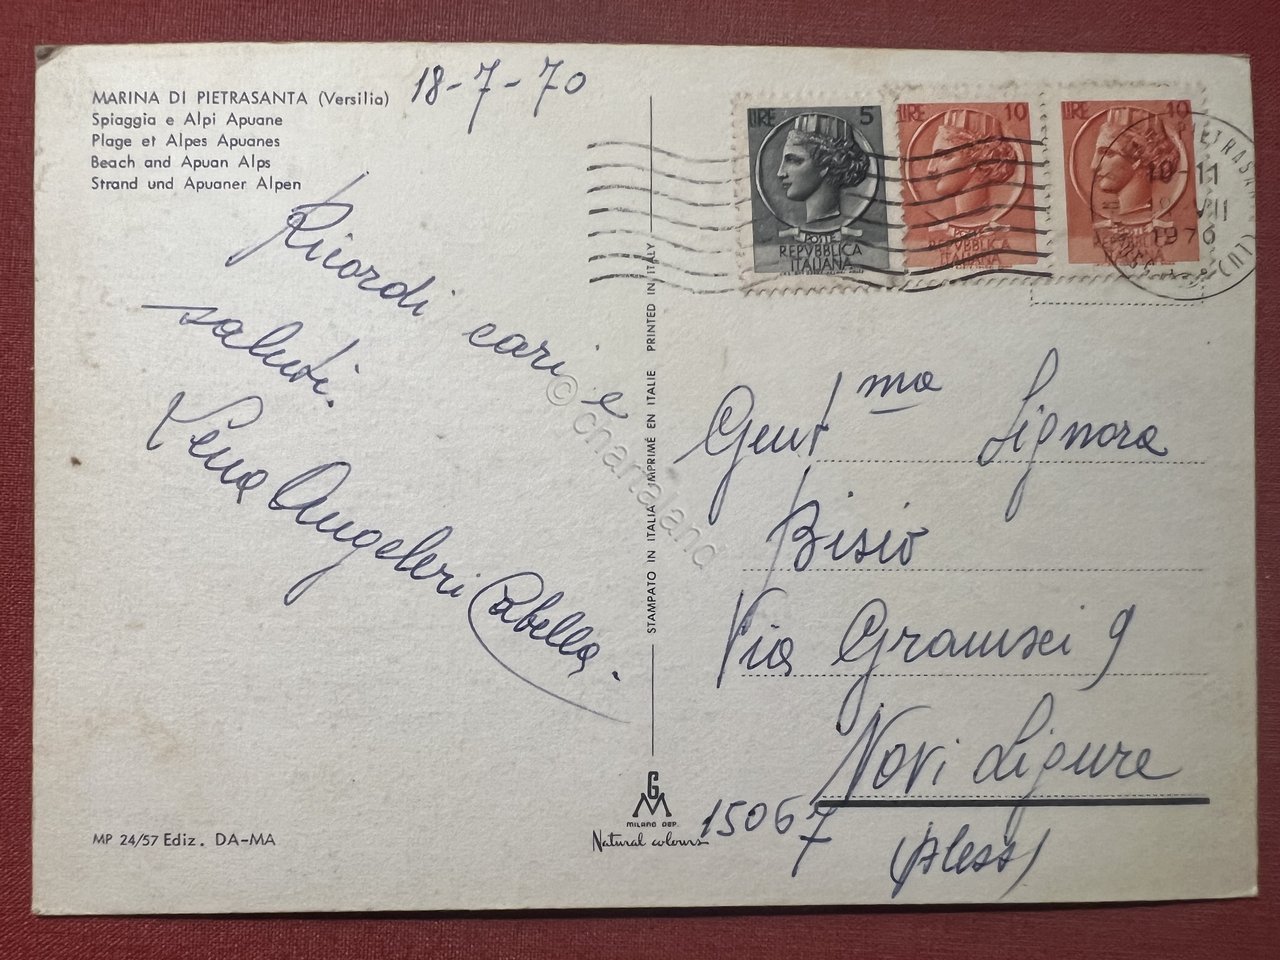 MARINA DI PIETRASANTA (Versilia)
Spiaggia e Alpi Apuane
Plage et Alpes Apuanes
Beach and Apuan Alps
Strand und Apuaner Alpen
18-7-70
Ricordi cari e
saluti.
Angeleri Cabella.
MP 24/57 Ediz. DA-MA
STAMPATO IN ITALIA IMPRIMÉ EN ITALIE PRINTED IN ITALY
GM
MILANO DEP.
Natural colours
LIRE 5
POSTE
REPVBBLICA
ITALIANA
LIRE 10
POSTE
REPVBBLICA
ITALIANA
LIRE 10
REPVBBLICA
ITALIANA
PIETRASANTA
(LU)
10-11
VII
1970
Gent.ma Signora
Bisio
Via Gramsci 9
Novi Ligure
15067
(Aless)
© chartaland